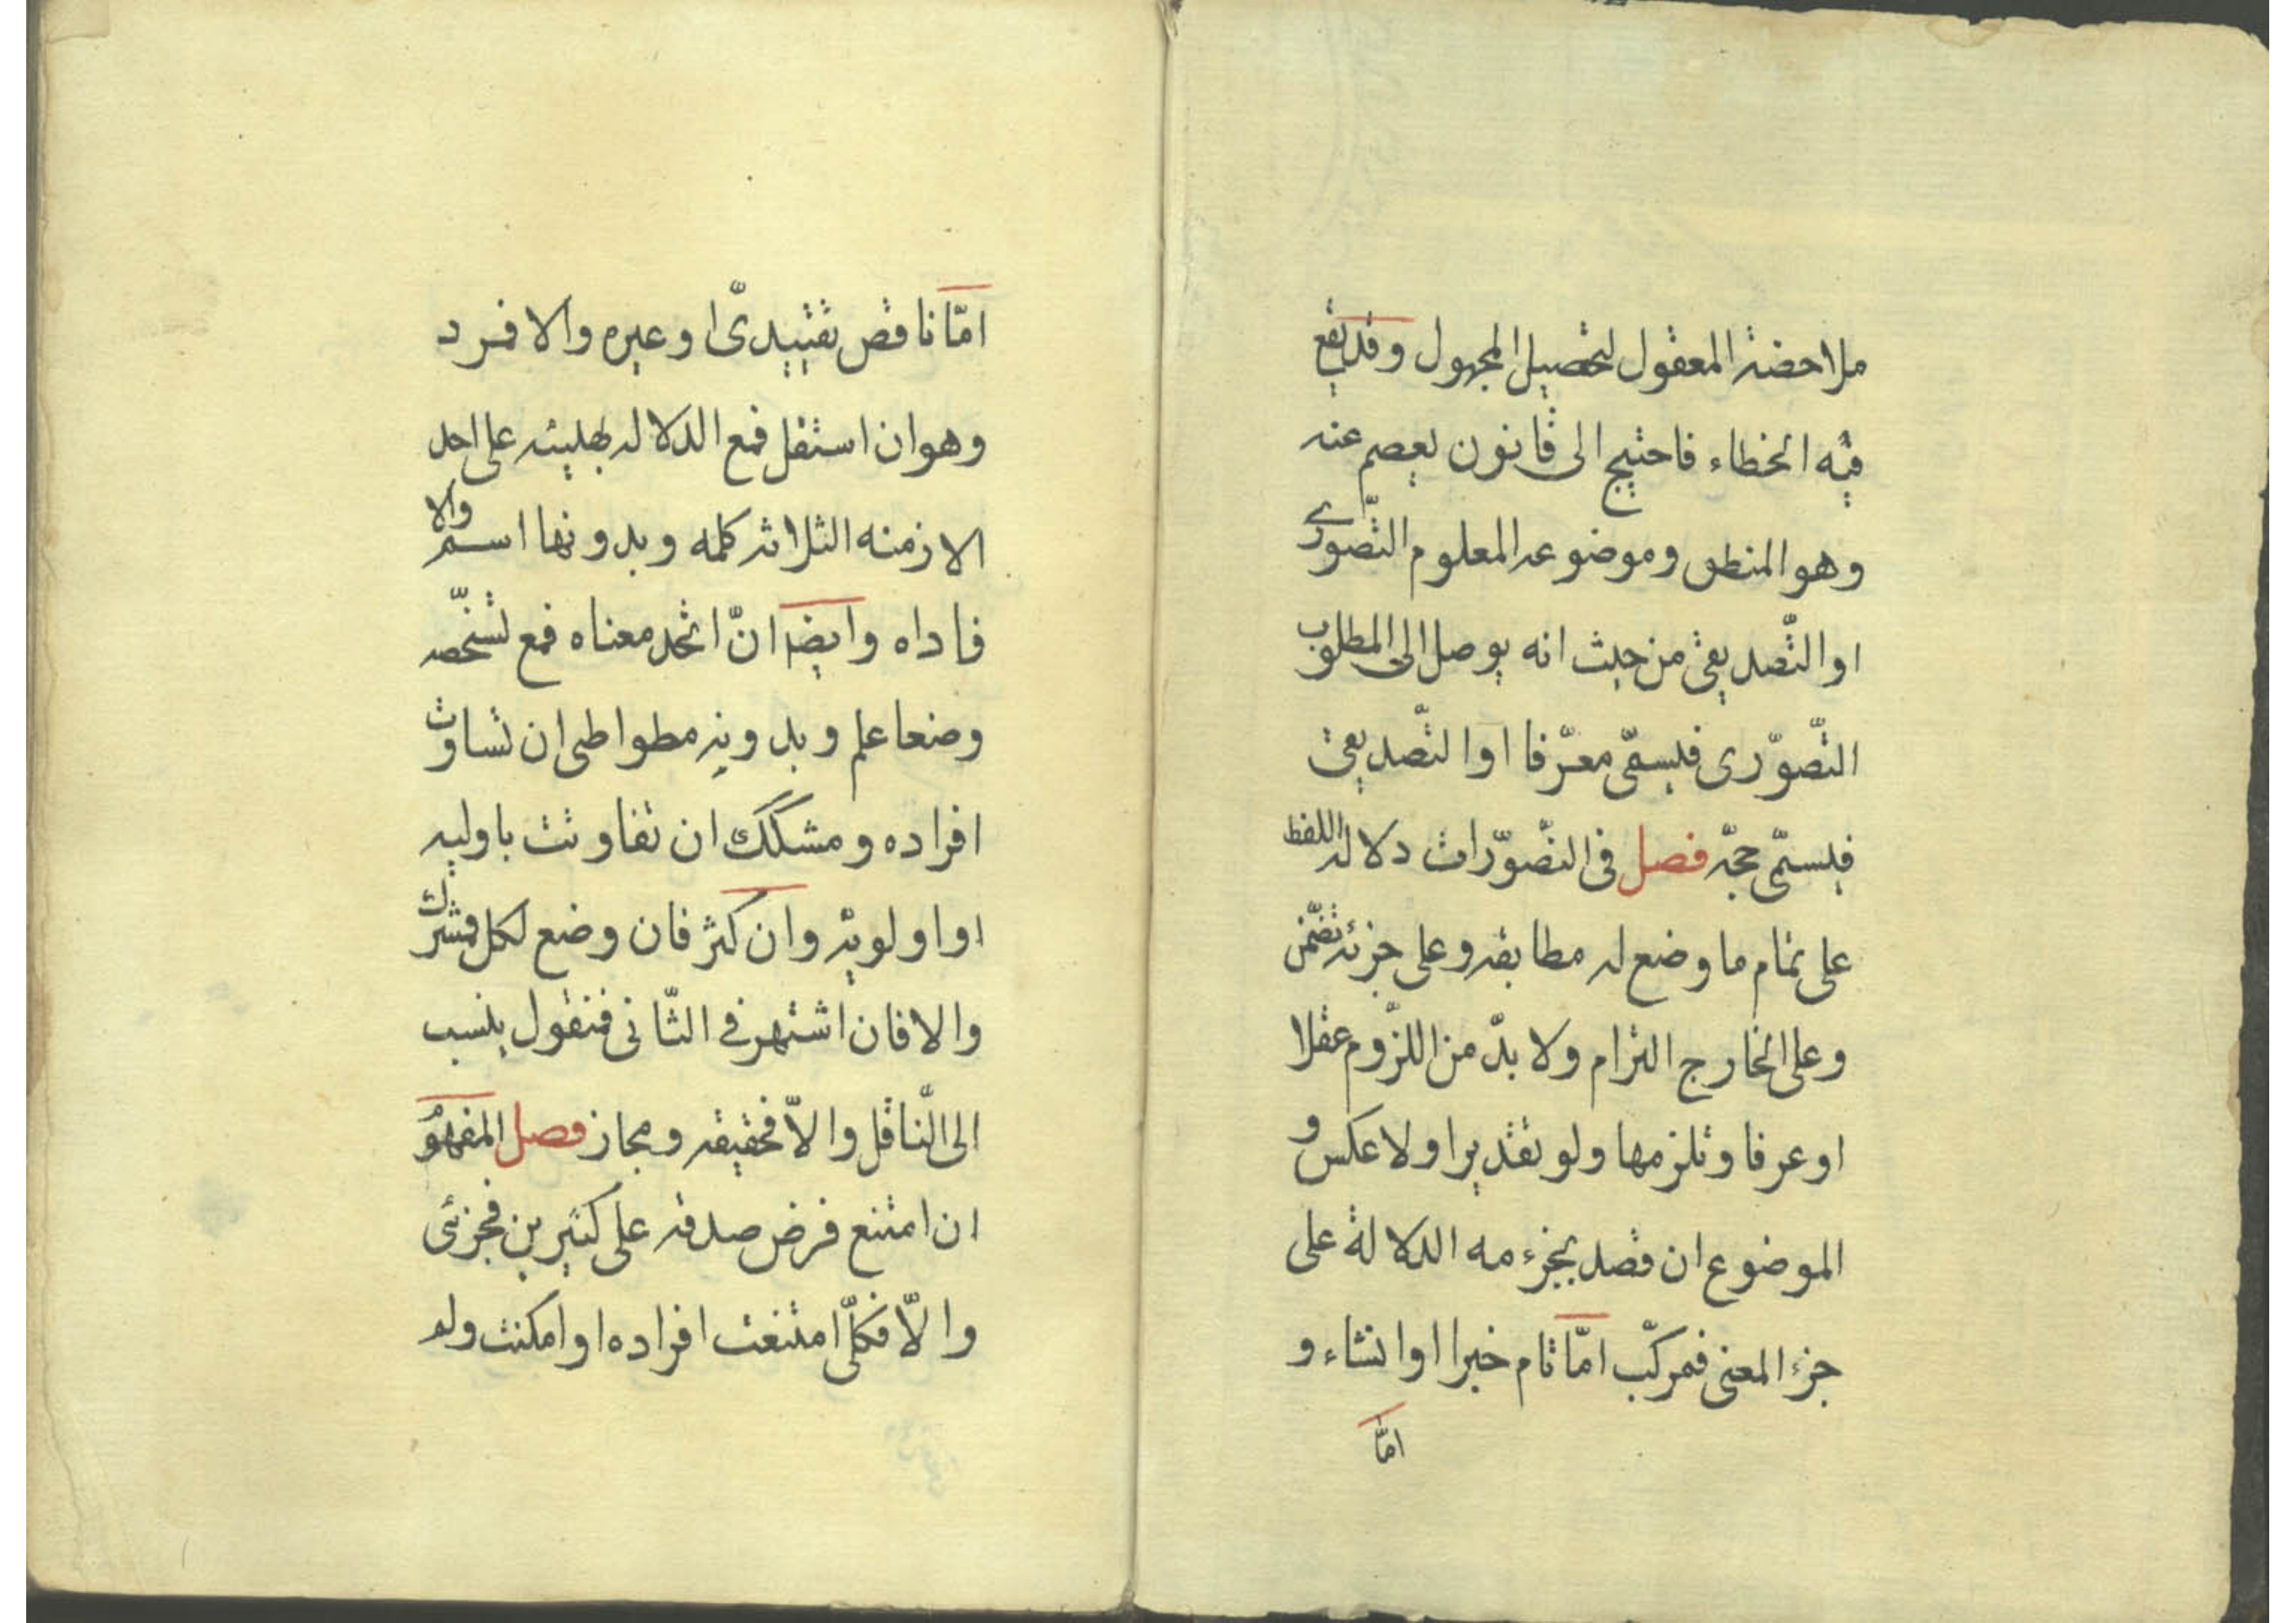 ملاحضة المعقول لتحصيل المجهول وقد يقع
فيه الخطاء فاحتيج الى قانون يعصم عنه
وهو المنطق وموضوعه المعلوم التصّورى
او التّصديقى من حيث انه يوصل الى المطلوب
التّصوّرى فيسمّى معرّفا او التّصديقى
فيسمّى حجّه فصل فى التصّوّرات دلاله اللفظ
على تمام ما وضع له مطابقه وعلى جزئه تضّمن
وعلى الخارج التزام ولا بدّ من اللزّوم عقلا
او عرفا وتلزمها ولو تقديرا ولا عكس و
الموضوع ان قصد بجزء مه الدلالة على
جزء المعنى فمركّب امّا تام خبرا او انشاء و
امّا
امّا ناقص تقييدىّ او عيره والا فمرد
وهو ان استقل فمع الدلاله بهليئه على احد
الازمنه الثلاثه كلمه وبدونها اسم والا
فاداه وايضا انّ اتحد معناه فمع تشخّصه
وضعا علم وبدونه مطواطى ان تساوت
افراده ومشكك ان تفاوتت باوليه
او اولويه وان كثر فان وضع لكل فمشترك
والا فان اشتهر فے الثّانى فمنقول ينسب
الى النّاقل والاّ فحقيقه ومجاز فصل المفهوم
ان امتنع فرض صدقه على كثيرين فجزئى
والّا فكلّى امتنعت افراده او امكنت ولم